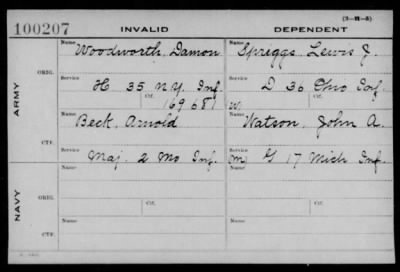 (3-H-5)
100207 INVALID DEPENDENT
Name Woodworth, Damon Name Spriggs, Lewis J.
ARMY
ORIG.
Service H 35 N.Y. Inf. Service D 36 Ohio Inf.
Ctf. 169681 Ctf. W
Name Beck, Arnold Name Watson, John A.
CTF.
Service Maj. 2 Mo Inf. Service m G 17 Mich Inf.
NAVY
Name Name
ORIG.
Service Ctf. Service Ctf.
Name Name
CTF.